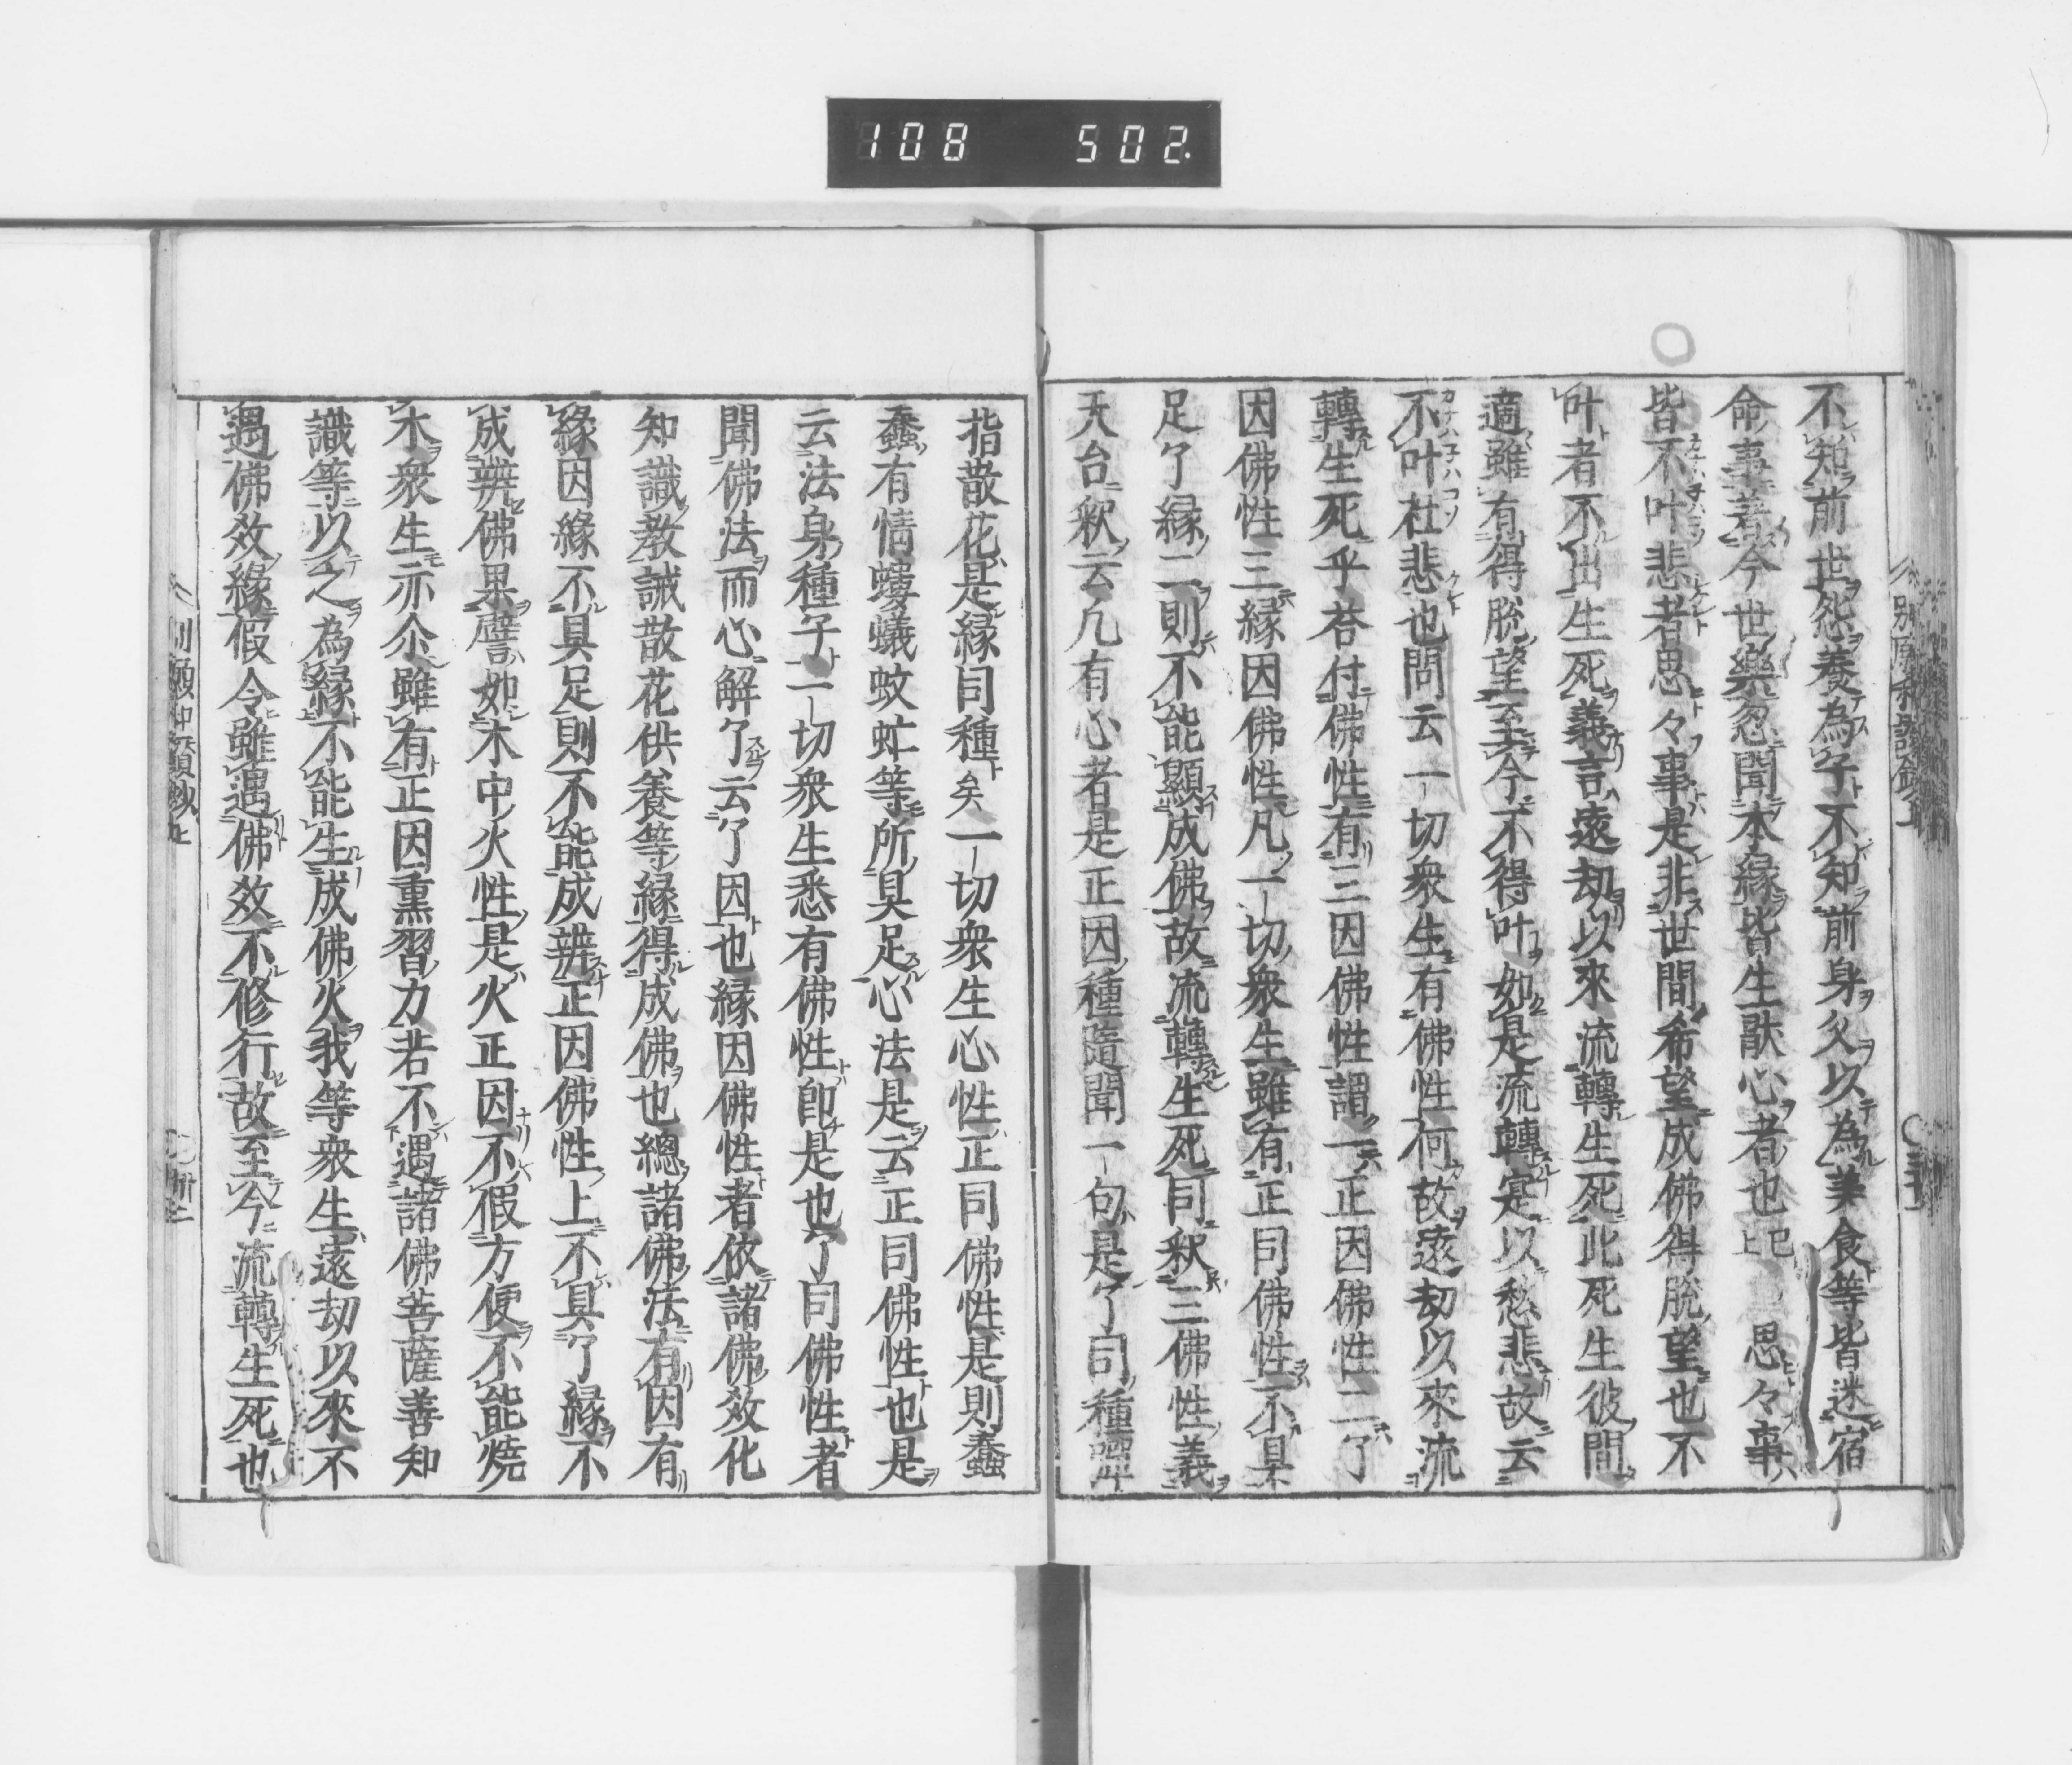 108 502.
不知前世怨養為子不知前身父以為美食等皆迷宿
命事者今世樂忽聞本縁皆生猒心者也上已思々事
皆不叶悲者思々事是非世間希望成佛得脱望也不
叶者不出生死義言遠劫以來流轉生死此死生彼間
適雖有得脱望至今不得叶如是流轉寔以愁悲故云
不叶社悲也問云一切衆生有佛性何故遠劫以來流
轉生死乎荅付佛性有三因佛性謂一正因佛性二了
因佛性三縁因佛性凡一切衆生雖有正同佛性不具
足了縁二則不能顯成佛故流轉生死同釈三佛性義
天台釈云凡有心者是正因種隨聞一句是了同種
指散花是縁同種矣一切衆生心性正同佛性是則蠢
蠢有情螻蟻蚊虻等所具足心法是云正同佛性也是
云法身種子一切衆生悉有佛性即是也了同佛性者
聞佛法而心解了云了因也縁因佛性者依諸佛效化
知識教誡散花供養等縁得成佛也總諸佛法有因有
緣因緣不具足則不能成辨正因佛性上不具了縁不
成辨佛果譬如木中火性是火正因不假方便不能燒
木衆生亦尒雖有正因熏習力若不遇諸佛菩薩善知
識等以之為縁不能生成佛火我等衆生遠劫以來不
遇佛效緣假令雖遇佛效不修行故至今流轉生死也